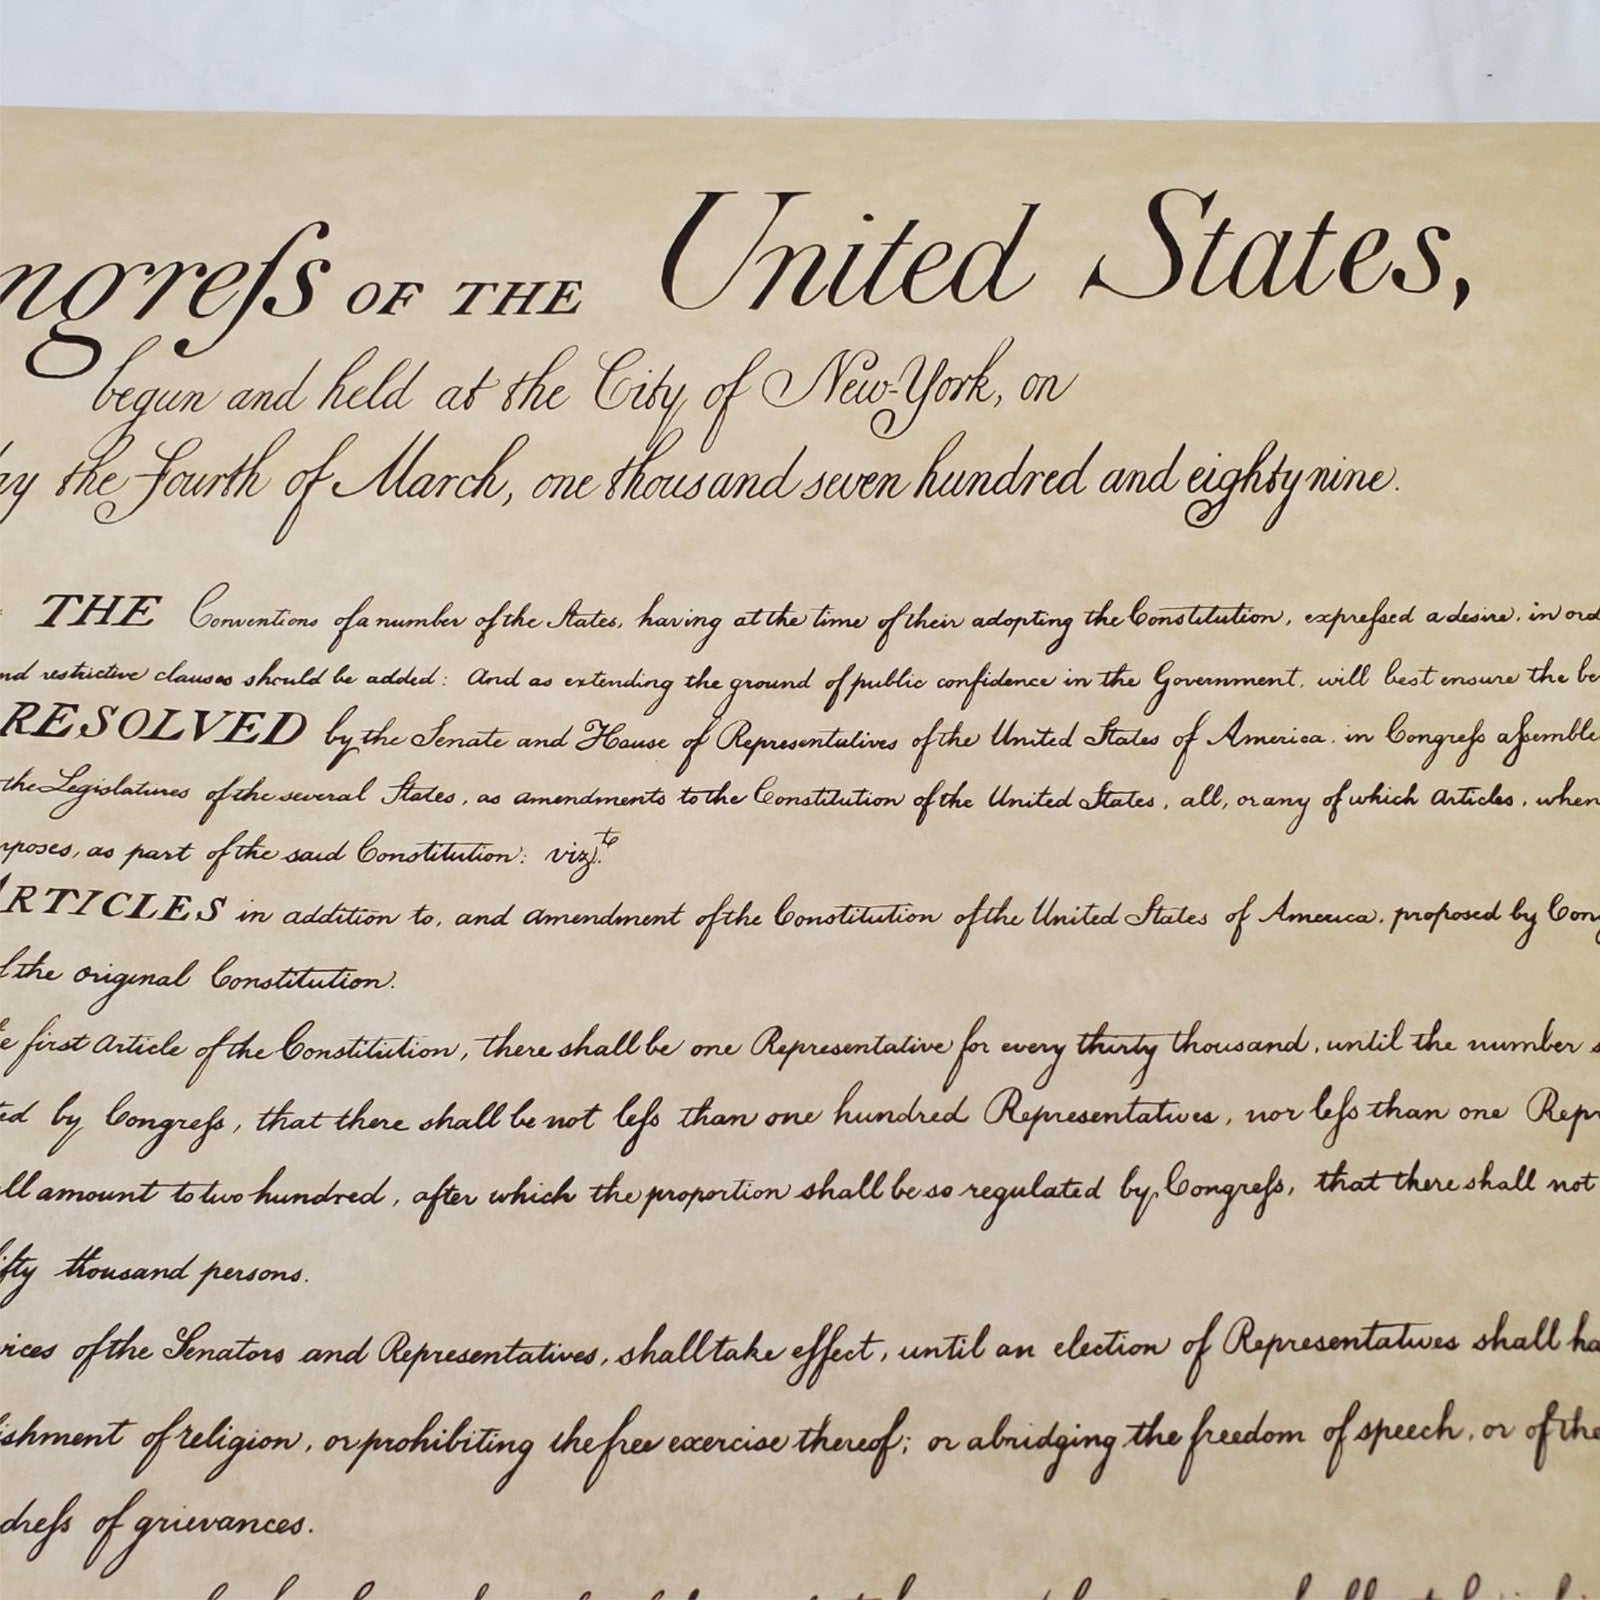 ngreſs OF THE United States,
begun and held at the City of New-York, on
the Fourth of March, one thousand seven hundred and eighty nine.
THE Conventions of a number of the States, having at the time of their adopting the Constitution, expreſsed a desire, in ord
nd restrictive clauses should be added: And as extending the ground of public confidence in the Government, will best ensure the be
RESOLVED by the Senate and House of Representatives of the United States of America, in Congreſs aſsemble
the Legislatures of the several States, as amendments to the Constitution of the United States, all, or any of which Articles, when
rposes, as part of the said Constitution: vizt.
ARTICLES in addition to, and amendment of the Constitution of the United States of America, proposed by Cong
the original Constitution.
first Article of the Constitution, there shall be one Representative for every thirty thousand, until the number s
ted by Congreſs, that there shall be not leſs than one hundred Representatives, nor leſs than one Repr
ll amount to two hundred, after which the proportion shall be so regulated by Congreſs, that there shall not
ifty thousand persons.
vices of the Senators and Representatives, shall take effect, until an election of Representatives shall ha
ishment of religion, or prohibiting the free exercise thereof; or abridging the freedom of speech, or of the
dreſs of grievances.